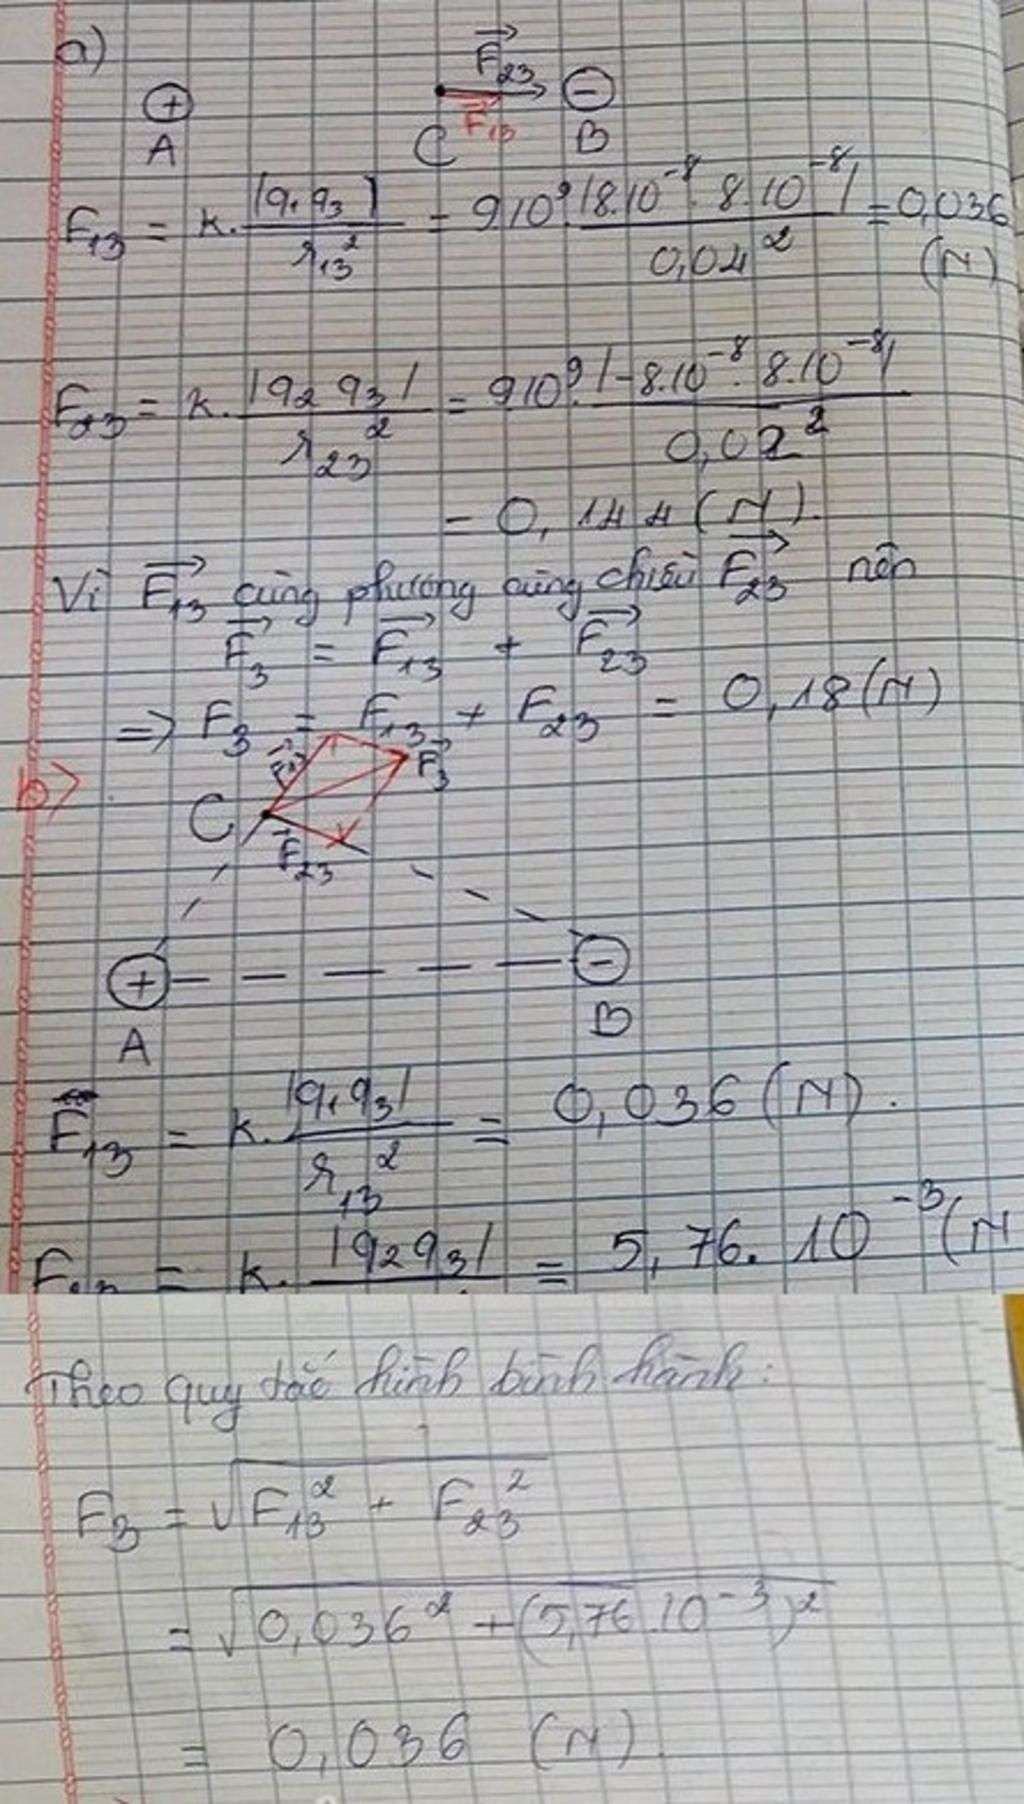 a)
F₂₃
F₁₃
+
-
A
C
B
F₁₃ = k. |q₁ q₃| / r₁₃² = 9.10⁹. |8.10⁻⁸. 8.10⁻⁸| / 0,04² = 0,036 (N)
F₂₃ = k. |q₂ q₃| / r₂₃² = 9.10⁹. |-8.10⁻⁸. 8.10⁻⁸| / 0,02²
= 0,144 (N).
Vì F₁₃ cùng phương cùng chiều F₂₃ nên
F₃ = F₁₃ + F₂₃
=> F₃ = F₁₃ + F₂₃ = 0,18 (N)
b)
F₁₃
F₃
C
F₂₃
+
-
A
B
F₁₃ = k. |q₁ q₃| / r₁₃² = 0,036 (N).
F₂₃ = k. |q₂ q₃| = 5,76. 10⁻³ (N
Theo quy tắc hình bình hành:
F₃ = √F₁₃² + F₂₃²
= √0,036² + (5,76.10⁻³)²
= 0,036 (N)